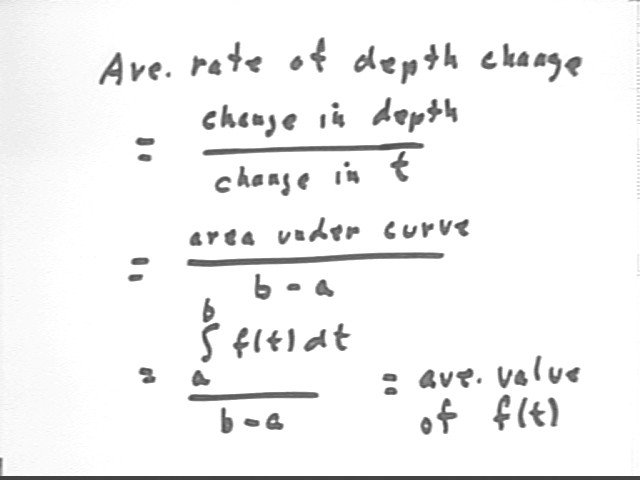 Ave. rate of depth change
= change in depth
change in t
= area under curve
b - a
b
∫ f(t) dt
a
=
b - a
= ave. value
of f(t)